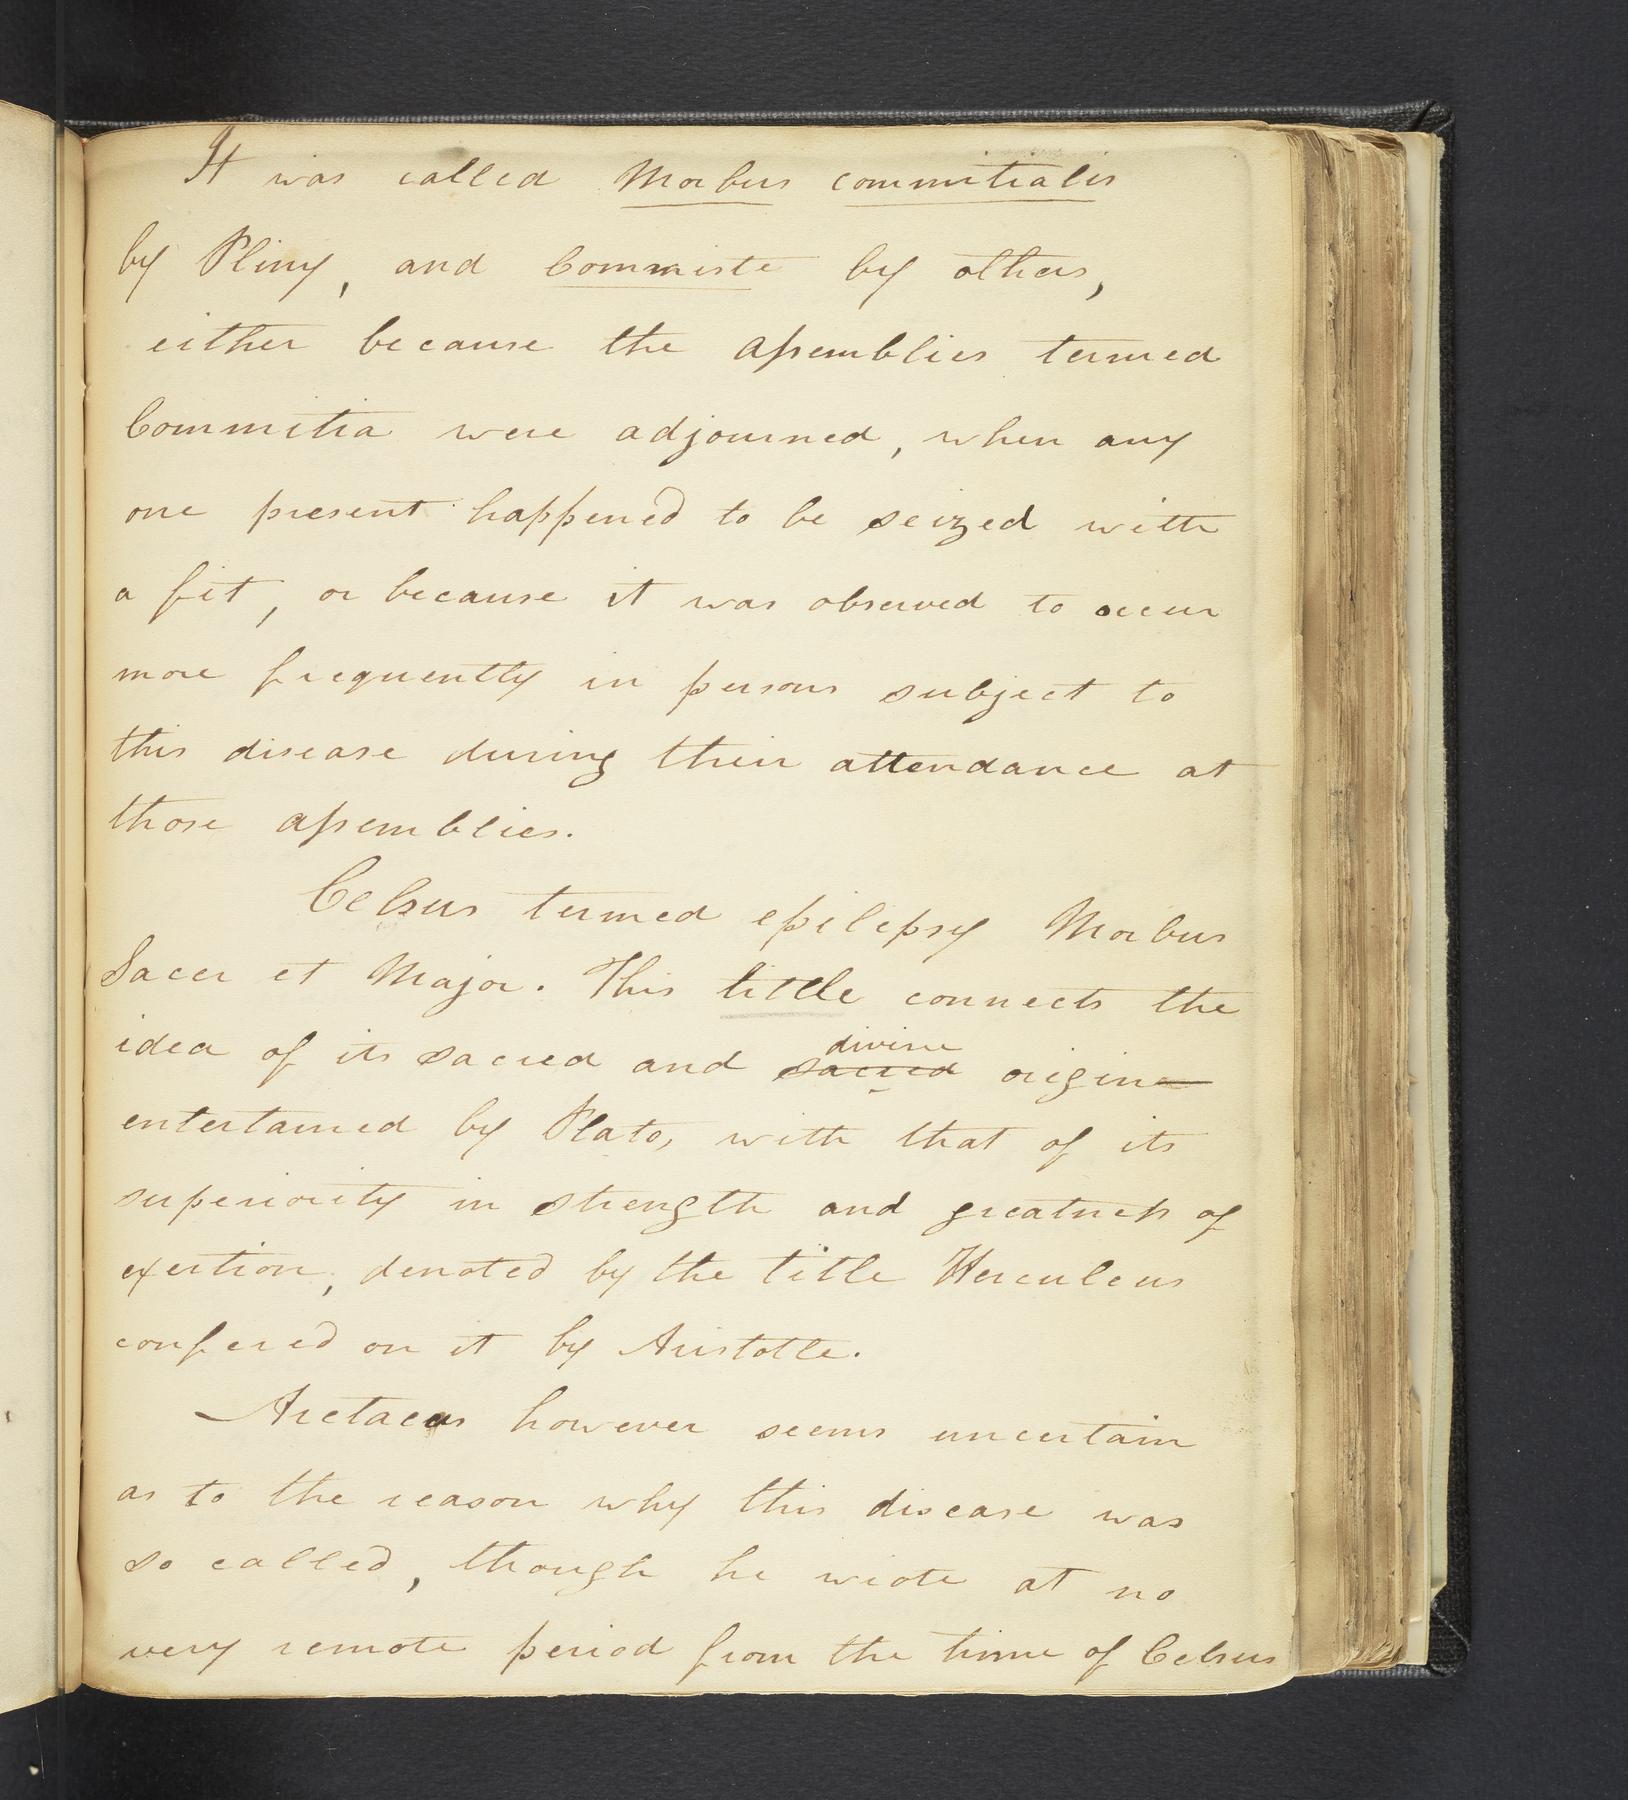 It was called Morbus commitialis
by Pliny, and Commiste by others,
either because the assemblies termed
Commitia were adjourned, when any
one present happened to be seized with
a fit, or because it was observed to occur
more frequently in persons subject to
this disease during their attendance at
those assemblies.
Celsus termed epilepsy Morbus
Sacer et Major. This tittle connects the
divine
idea of its sacred and sacred origin
entertained by Plato, with that of its
superiority in strength and greatness of
exertion, denoted by the title Herculeus
confered on it by Aristotle.
Aretaeus however seems uncertain
as to the reason why this disease was
so called, though he wrote at no
very remote period from the time of Celsus